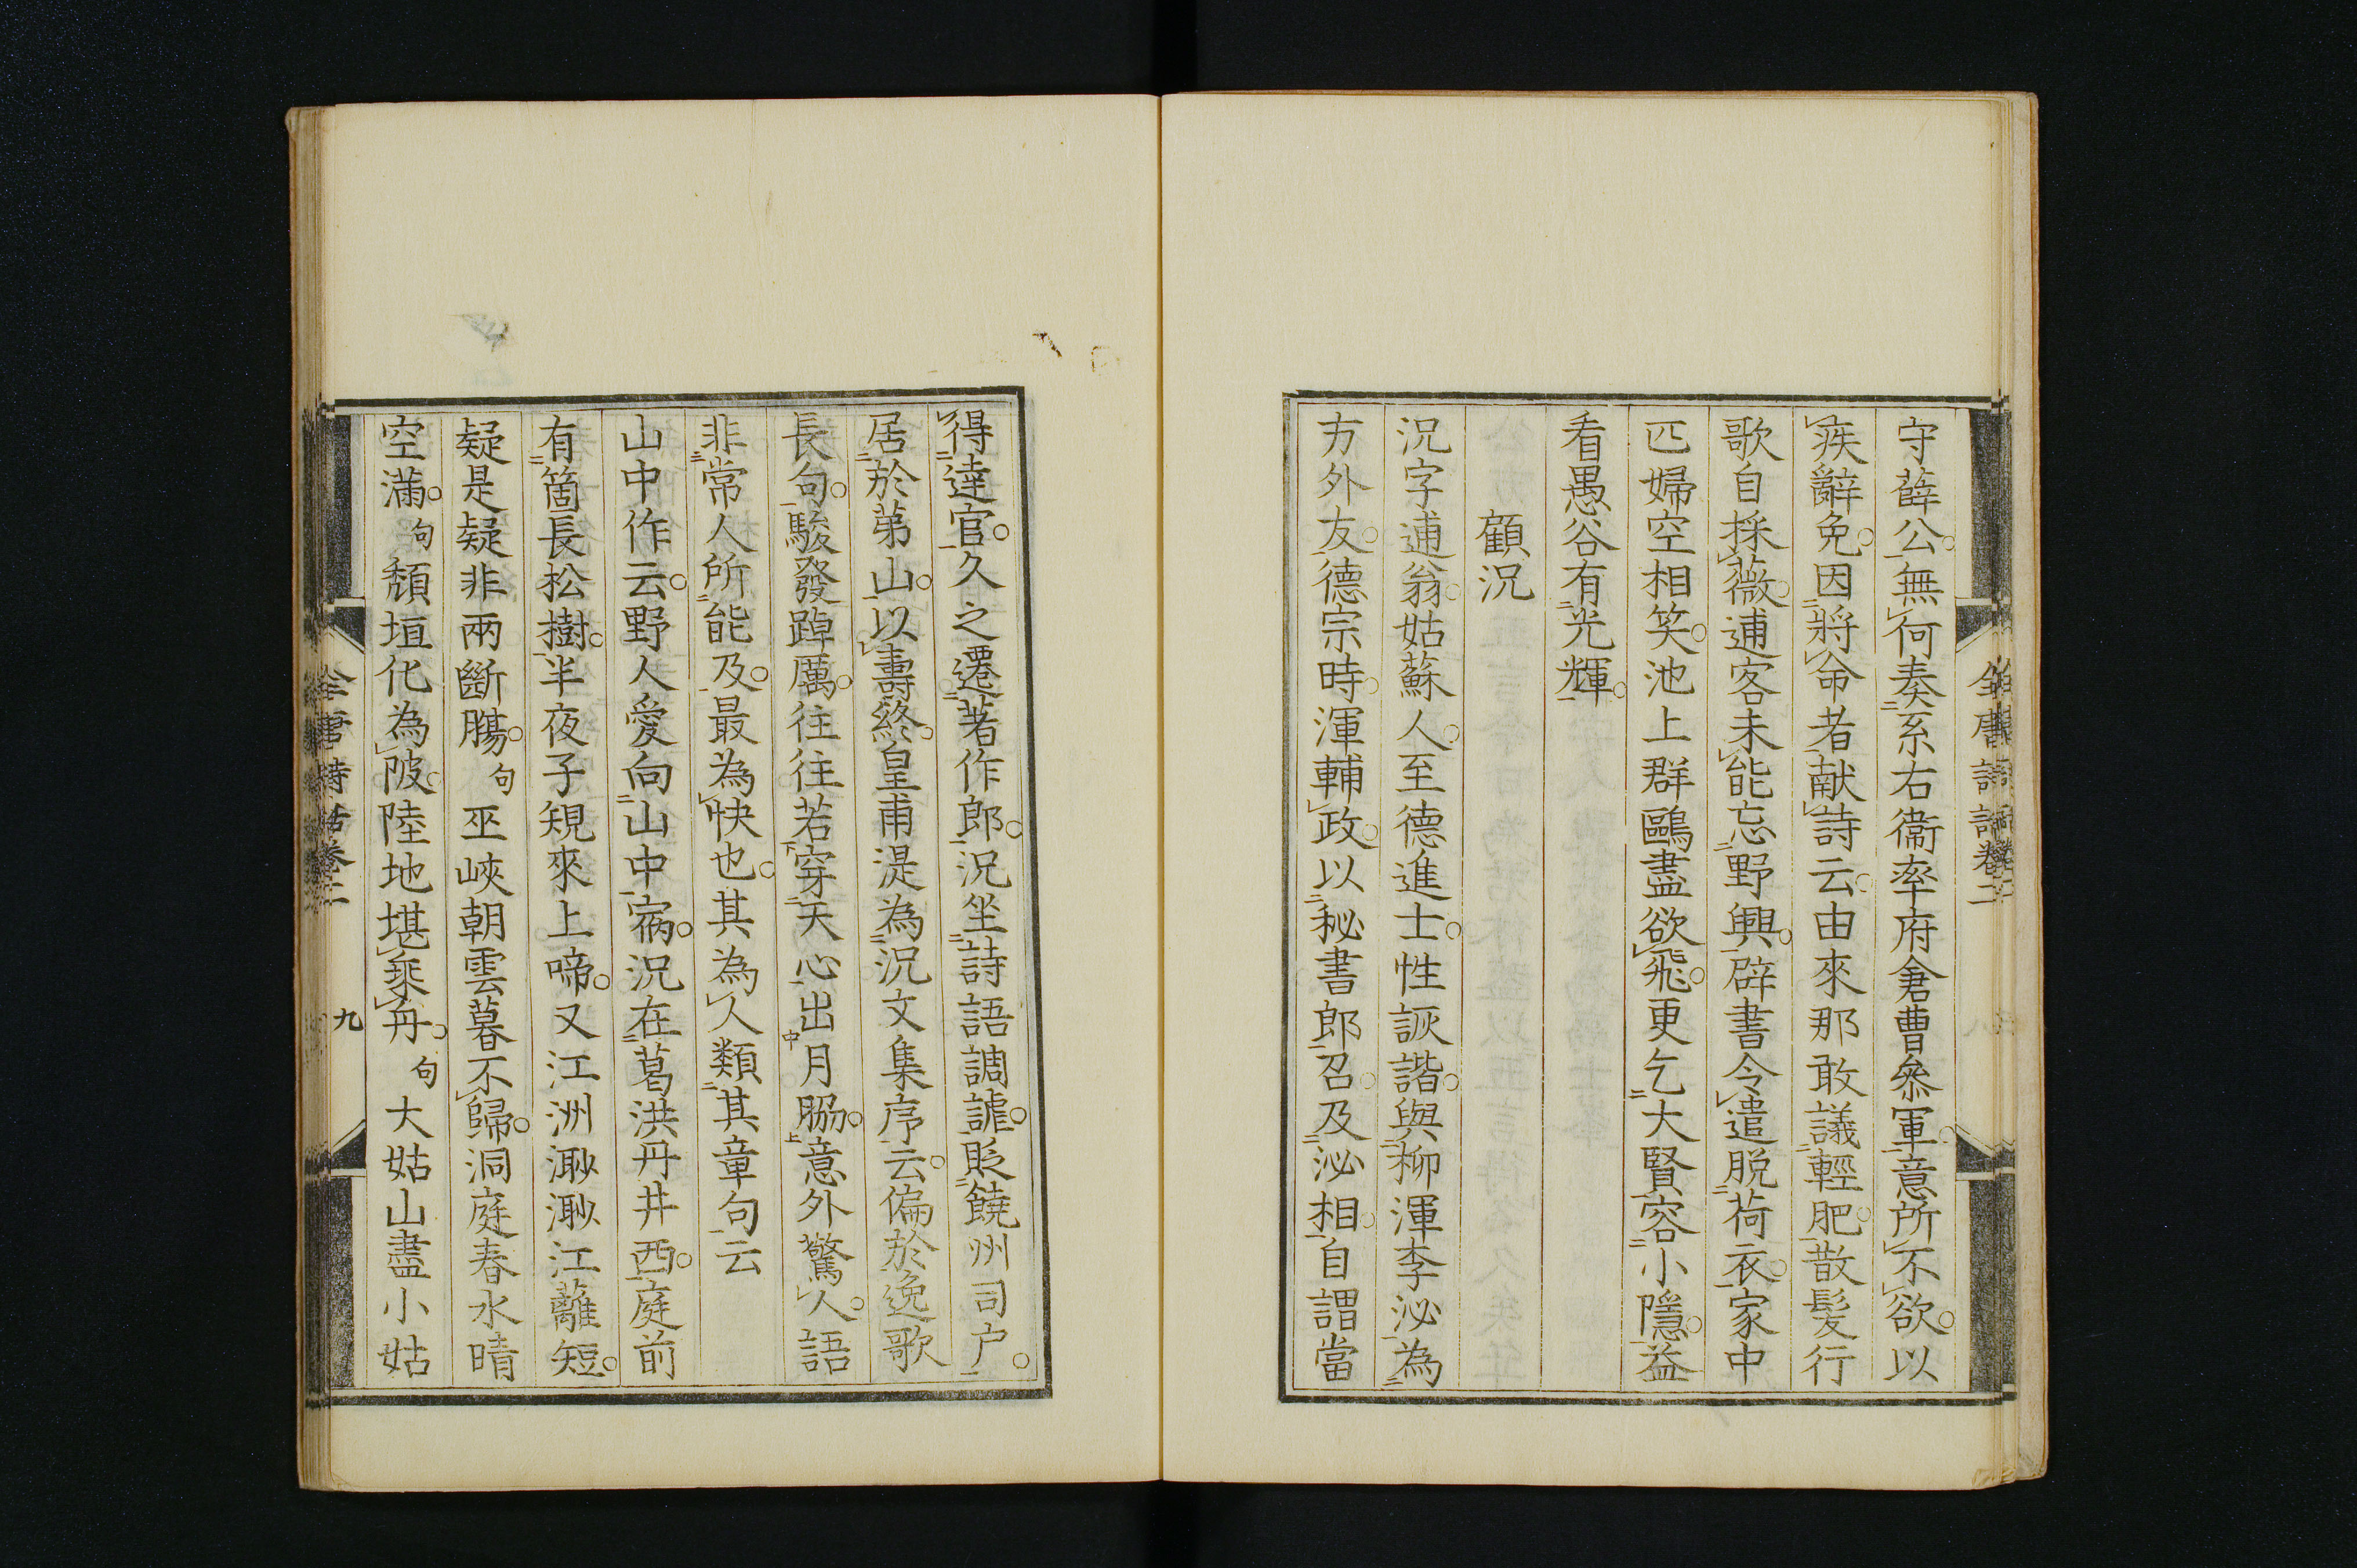 守薛公無何奏系右衞率府倉曹叅軍意所不欲以
疾辭免因將命者献詩云由來那敢議輕肥散髪行
歌自採薇逋客未能忘野興辟書令遣脱荷衣家中
匹婦空相笑池上群鷗盡欲飛更乞大賢容小隱益
看愚谷有光輝
顧況
況字逋翁姑蘇人至德進士性詼諧與柳渾李泌為
方外友德宗時渾輔政以秘書郎召及泌相自謂當
得達官久之遷著作郎況坐詩語調謔貶饒州司户
居於茅山以壽終皇甫湜為況文集序云偏於逸歌
長句駿發踔厲往往若穿天心出月脇意外驚人語
非常人所能及最為快也其為人類其章句云
山中作云野人愛向山中宿況在葛洪丹井西庭前
有箇長松樹半夜子規來上啼又江洲渺渺江蘺短
疑是疑非兩斷腸句巫峽朝雲暮不歸洞庭春水晴
空滿句頽垣化為陂陸地堪乘舟句大姑山盡小姑
全唐詩話卷二
九